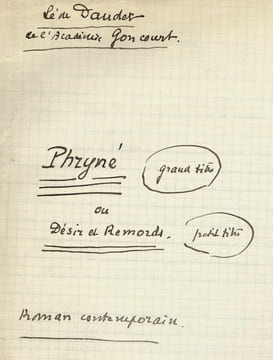 Léon Daudet
de l'Académie Goncourt.
Phryné
grand titre
ou
Désir et Remords.
petit titre
Roman contemporain.